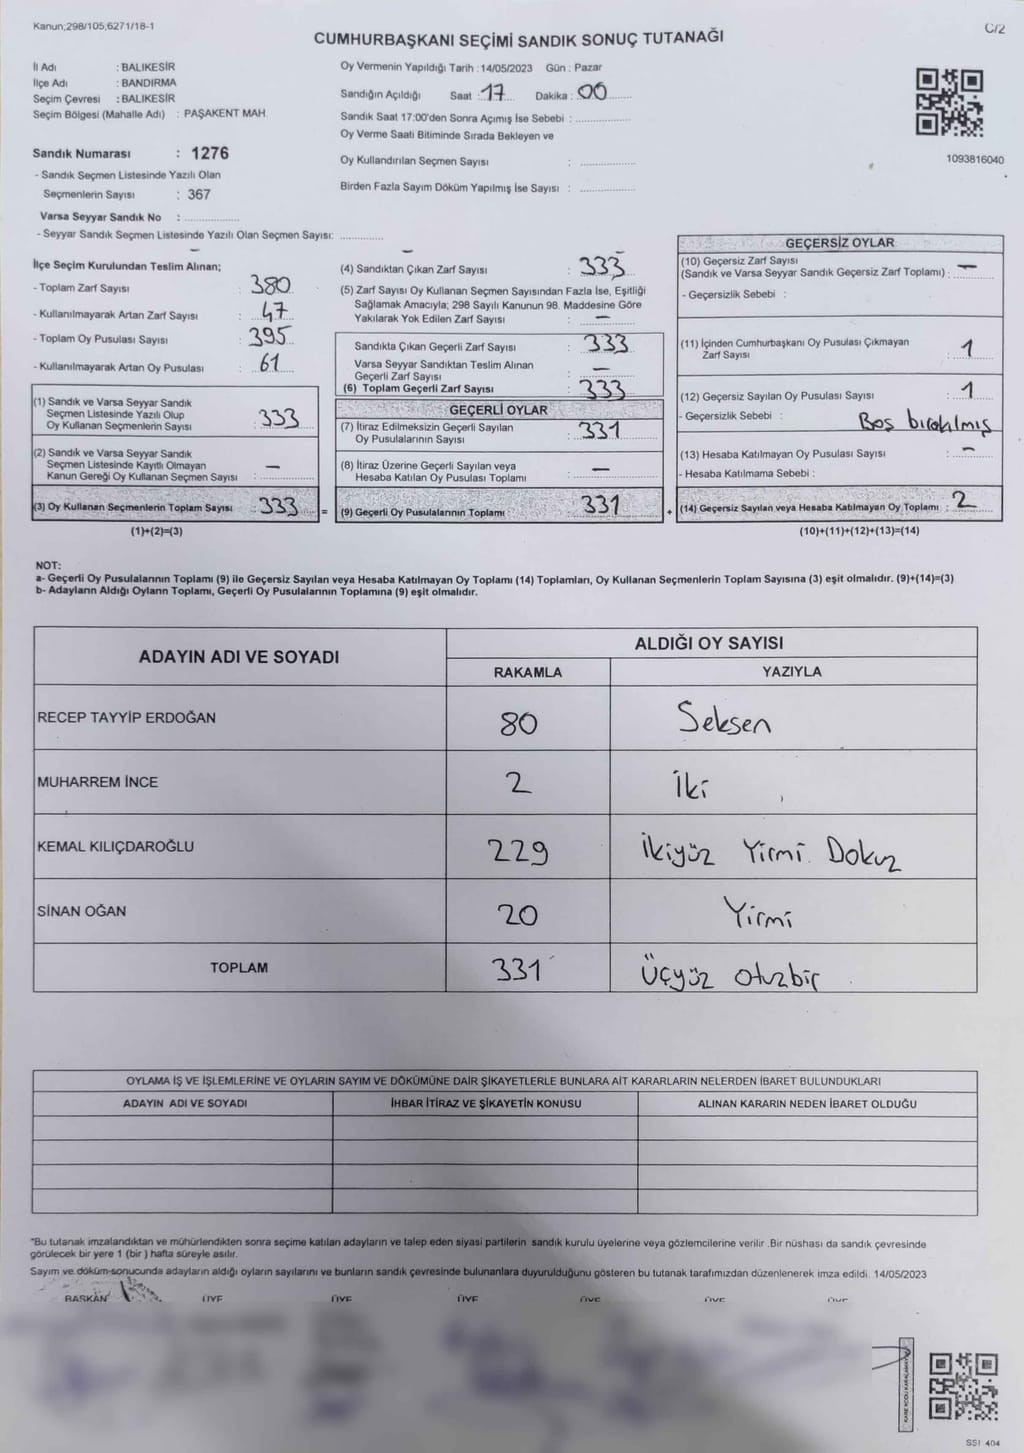 Kanun;298/105,6271/18-1
C/2
CUMHURBAŞKANI SEÇİMİ SANDIK SONUÇ TUTANAĞI
İl Adı : BALIKESİR
İlçe Adı : BANDIRMA
Seçim Çevresi : BALIKESİR
Seçim Bölgesi (Mahalle Adı) : PAŞAKENT MAH
Sandık Numarası : 1276
- Sandık Seçmen Listesinde Yazılı Olan
Seçmenlerin Sayısı : 367
Varsa Seyyar Sandık No : ...................
- Seyyar Sandık Seçmen Listesinde Yazılı Olan Seçmen Sayısı: ...............
–
Oy Vermenin Yapıldığı Tarih : 14/05/2023 Gün : Pazar
Sandığın Açıldığı Saat : 17 Dakika : 00
Sandık Saat 17:00'den Sonra Açımış İse Sebebi : ...................
Oy Verme Saati Bitiminde Sırada Bekleyen ve
Oy Kullandırılan Seçmen Sayısı : ...................
Birden Fazla Sayım Döküm Yapılmış İse Sayısı : ...................
–
1093816040
İlçe Seçim Kurulundan Teslim Alınan;
- Toplam Zarf Sayısı : 380
- Kullanılmayarak Artan Zarf Sayısı : 47
- Toplam Oy Pusulası Sayısı : 395
- Kullanılmayarak Artan Oy Pusulası : 61
(1) Sandık ve Varsa Seyyar Sandık
Seçmen Listesinde Yazılı Olup
Oy Kullanan Seçmenlerin Sayısı : 333
(2) Sandık ve Varsa Seyyar Sandık
Seçmen Listesinde Kayıtlı Olmayan
Kanun Gereği Oy Kullanan Seçmen Sayısı : –
(3) Oy Kullanan Seçmenlerin Toplam Sayısı : 333
=
(1)+(2)=(3)
(4) Sandıktan Çıkan Zarf Sayısı : 333
(5) Zarf Sayısı Oy Kullanan Seçmen Sayısından Fazla İse, Eşitliği
Sağlamak Amacıyla; 298 Sayılı Kanunun 98. Maddesine Göre
Yakılarak Yok Edilen Zarf Sayısı : –
Sandıkta Çıkan Geçerli Zarf Sayısı : 333
Varsa Seyyar Sandıktan Teslim Alınan
Geçerli Zarf Sayısı : –
(6) Toplam Geçerli Zarf Sayısı : 333
GEÇERLİ OYLAR
(7) İtiraz Edilmeksizin Geçerli Sayılan
Oy Pusulalarının Sayısı : 331
(8) İtiraz Üzerine Geçerli Sayılan veya
Hesaba Katılan Oy Pusulası Toplamı : –
(9) Geçerli Oy Pusulalarının Toplamı : 331
+
GEÇERSİZ OYLAR
(10) Geçersiz Zarf Sayısı
(Sandık ve Varsa Seyyar Sandık Geçersiz Zarf Toplamı) : –
- Geçersizlik Sebebi :
(11) İçinden Cumhurbaşkanı Oy Pusulası Çıkmayan
Zarf Sayısı : 1
(12) Geçersiz Sayılan Oy Pusulası Sayısı : 1
- Geçersizlik Sebebi : Boş bırakılmış
(13) Hesaba Katılmayan Oy Pusulası Sayısı : –
- Hesaba Katılmama Sebebi :
(14) Geçersiz Sayılan veya Hesaba Katılmayan Oy Toplamı : 2
(10)+(11)+(12)+(13)=(14)
NOT:
a- Geçerli Oy Pusulalarının Toplamı (9) ile Geçersiz Sayılan veya Hesaba Katılmayan Oy Toplamı (14) Toplamları, Oy Kullanan Seçmenlerin Toplam Sayısına (3) eşit olmalıdır. (9)+(14)=(3)
b- Adayların Aldığı Oyların Toplamı, Geçerli Oy Pusulalarının Toplamına (9) eşit olmalıdır.
ADAYIN ADI VE SOYADI
ALDIĞI OY SAYISI
RAKAMLA YAZIYLA
RECEP TAYYİP ERDOĞAN 80 Seksen
MUHARREM İNCE 2 İki
KEMAL KILIÇDAROĞLU 229 İkiyüz Yirmi Dokuz
SİNAN OĞAN 20 Yirmi
TOPLAM 331 Üçyüz otuzbir
OYLAMA İŞ VE İŞLEMLERİNE VE OYLARIN SAYIM VE DÖKÜMÜNE DAİR ŞİKAYETLERLE BUNLARA AİT KARARLARIN NELERDEN İBARET BULUNDUKLARI
ADAYIN ADI VE SOYADI İHBAR İTİRAZ VE ŞİKAYETİN KONUSU ALINAN KARARIN NEDEN İBARET OLDUĞU
"Bu tutanak imzalandıktan ve mühürlendikten sonra seçime katılan adayların ve talep eden siyasi partilerin sandık kurulu üyelerine veya gözlemcilerine verilir .Bir nüshası da sandık çevresinde
görülecek bir yere 1 (bir ) hafta süreyle asılır.
Sayım ve döküm sonucunda adayların aldığı oyların sayılarını ve bunların sandık çevresinde bulunanlara duyurulduğunu gösteren bu tutanak tarafımızdan düzenlenerek imza edildi. 14/05/2023
BAŞKAN ÜYE ÜYE ÜYE ÜYE ÜYE ÜYE
KARE KODU KARALAMAYINIZ
SSI 404